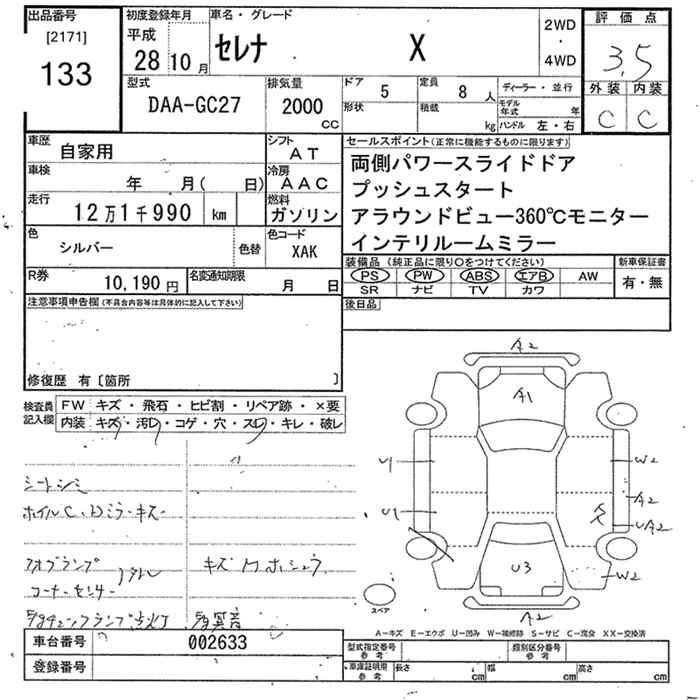 出品番号
[2171]
133
初度登録年月
平成
28 10 月
車名・グレード
セレナ X
2WD
・
4WD
評価点
3,5
外装 内装
C C
型式
DAA-GC27
排気量
2000
CC
ドア
5
形状
定員
8 人
積載
kg
ディーラー・並行
モデル年式 年
ハンドル 左・右
車歴
自家用
車検
年 月( 日)
走行
12万1千990 km
色
シルバー
色替
R券
10,190 円
名変通知期限
月 日
シフト
AT
冷房
AAC
燃料
ガソリン
色コード
XAK
セールスポイント(正常に機能するものに限ります)
両側パワースライドドア
プッシュスタート
アラウンドビュー360℃モニター
インテリルームミラー
装備品 (純正品に限り○をつけてください)
PS PW ABS エアB AW
SR ナビ TV カワ
新車保証書
有・無
後日品
注意事項申告欄(不具合内容等は具体的に記入して下さい)
修復歴 有〔箇所 〕
検査員
記入欄
FW キズ・飛石・ヒビ割・リペア跡・×要
内装 キズ・汚レ・コゲ・穴・スレ・キレ・破レ
シートシミ
ホイルC、Dミラーキズ
フォグランプ
コーナーセンサー
A2
A1
U1
U1
W2
A2
UA2
W2
U3
A2
スペア
A―キズ E―エクボ U―凹み W―補修跡 S―サビ C―腐食 XX―交換済
車台番号
002633
登録番号
型式指定番号
参考
類別区分番号
参考
車庫証明用
参考
長さ cm 幅 cm 高さ cm